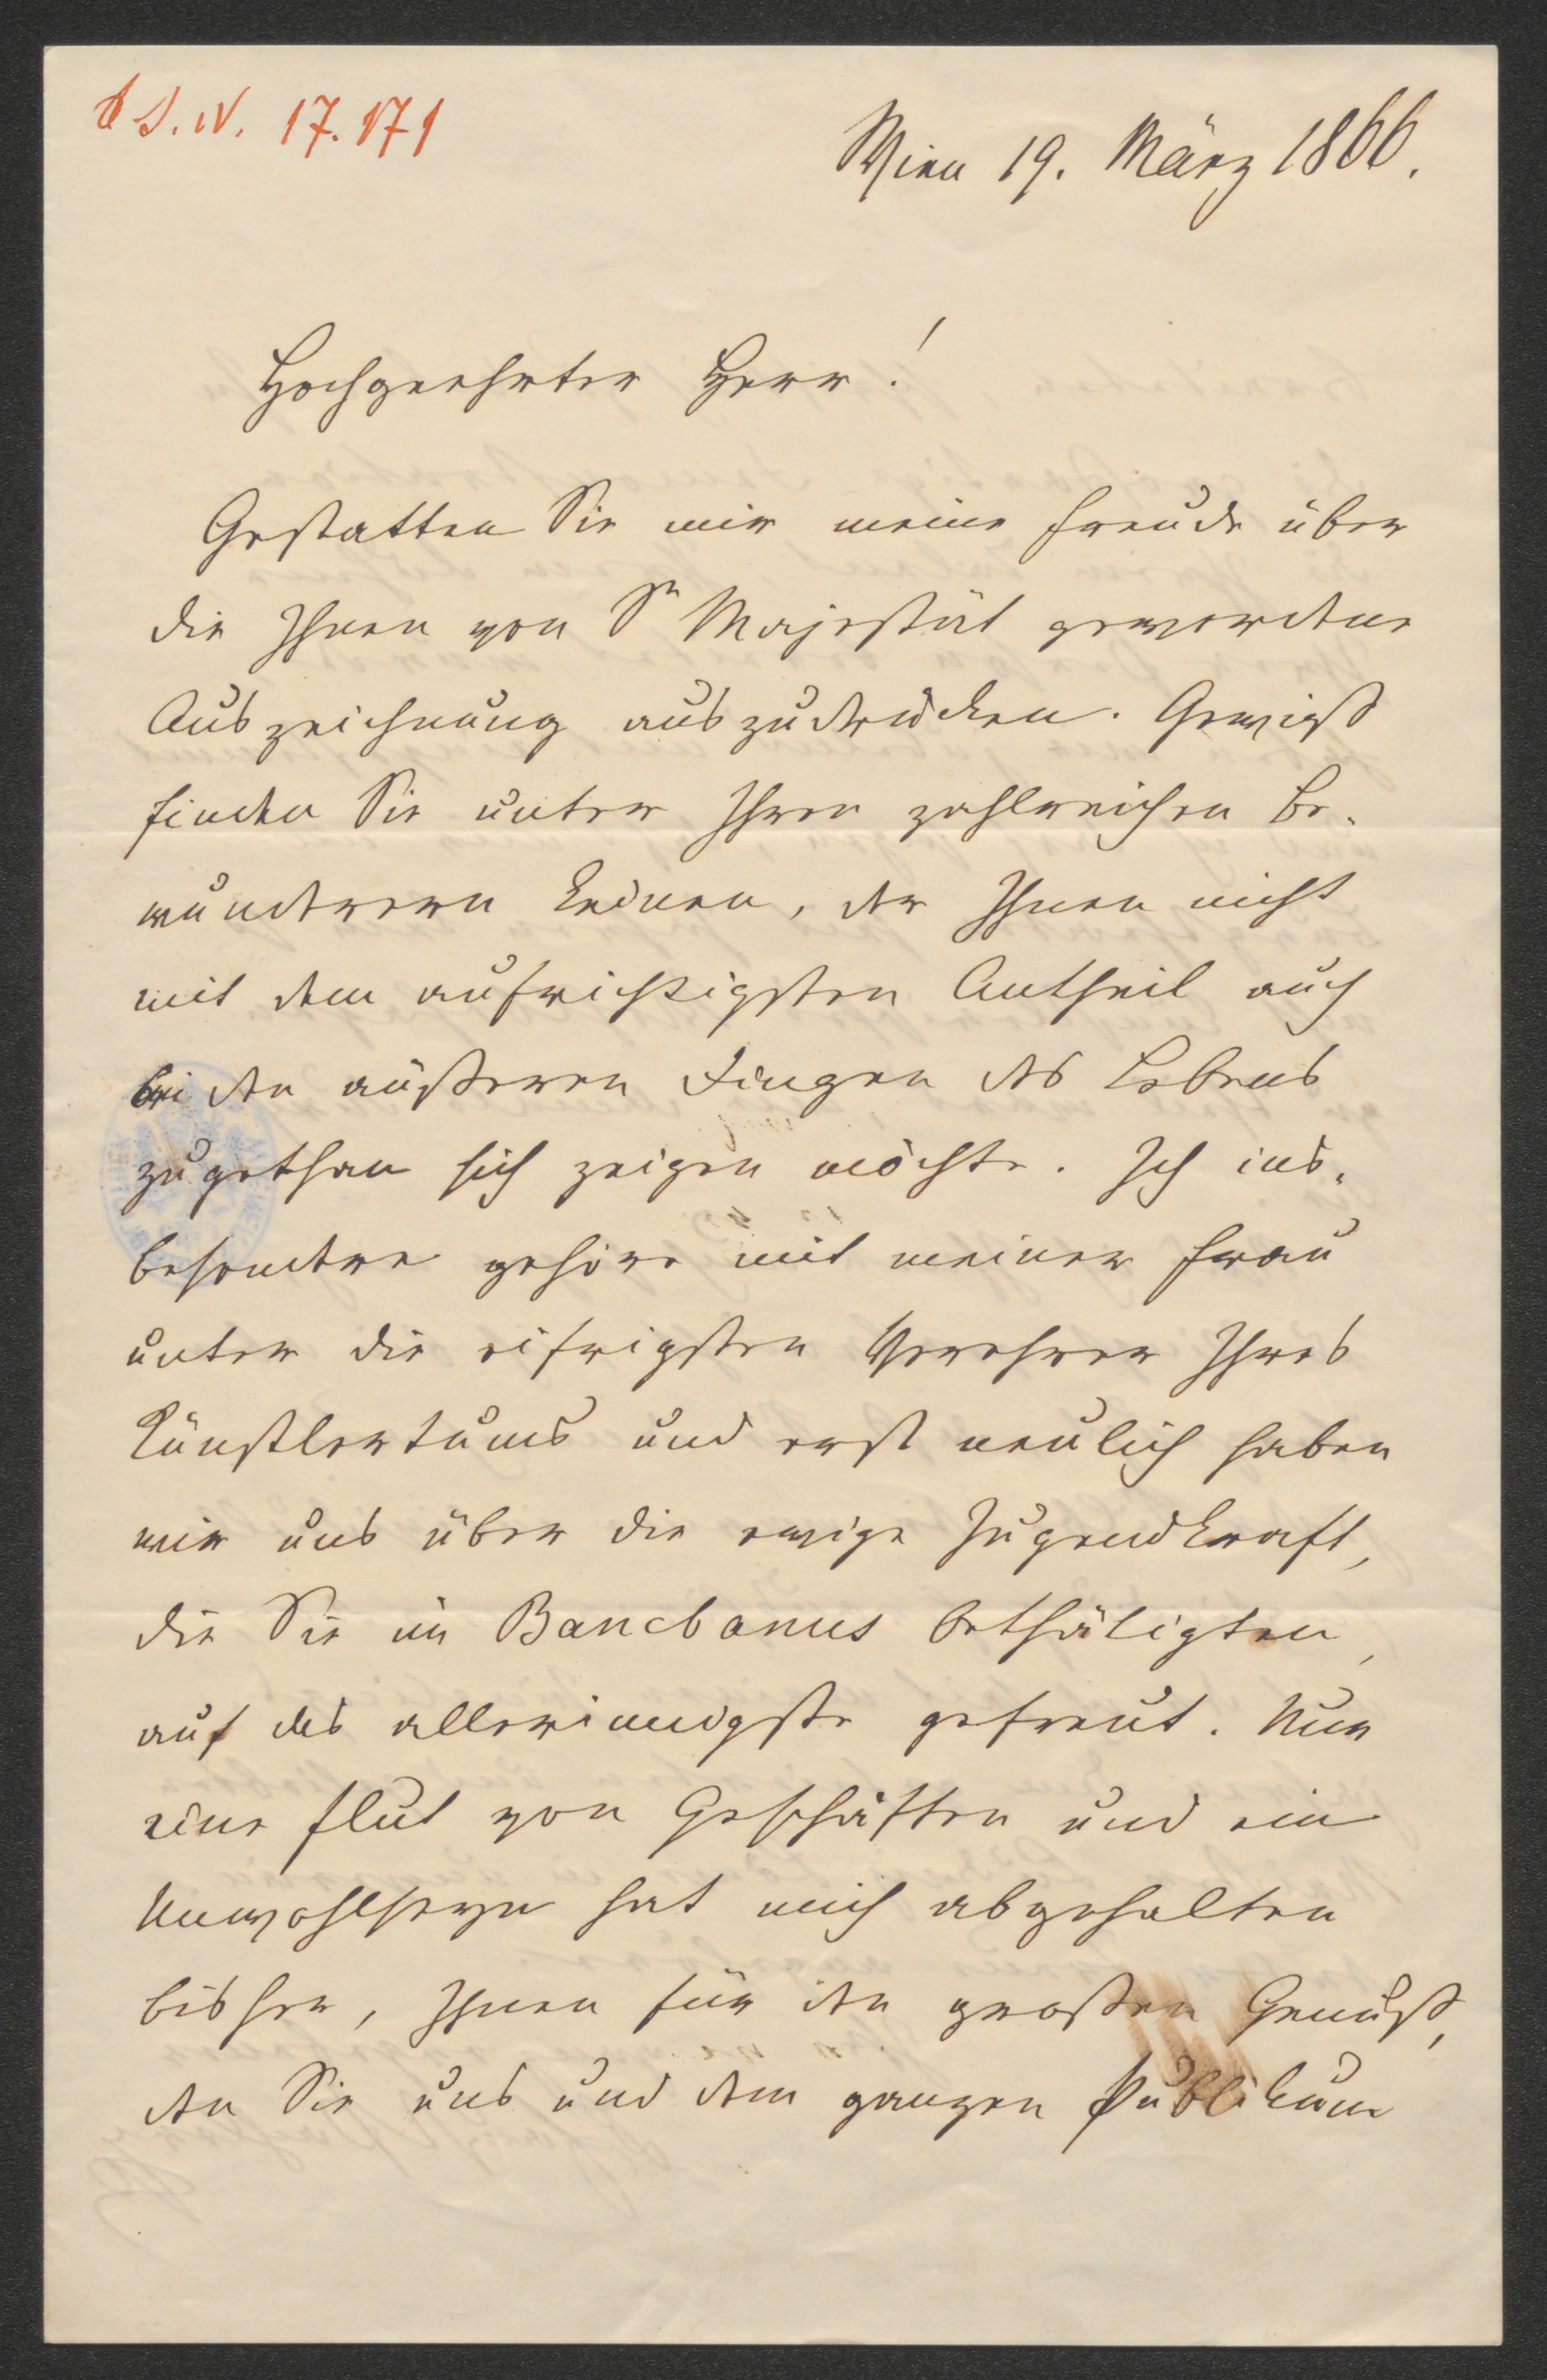 J. N. 17.171
Wien 19. März 1866.
Hochgeehrter Herr!
Gestatten Sie mir meine Freude über
die Ihnen von Sr Majestät gewordene
Auszeichnung auszudrücken. Gewiß
finden Sie unter Ihren zahlreichen Be-
wunderern Keinen, der Ihnen nicht
mit dem aufrichtigsten Antheil auch
bei den äußeren Dingen des Lebens
zugethan sich zeigen möchte. Ich ins-
besondere gehöre mit meiner Frau
unter die eifrigsten Verehrer Ihres
Künstlertums und erst neulich haben
wir uns über die ewige Jugendkraft,
die Sie im Bancbanus bethätigten,
auf das allerinnigste gefreut. Nur
eine Flut von Geschäften und ein
Unwohlseyn hat mich abgehalten
bisher, Ihnen für den großen Genuß,
den Sie uns und dem ganzen Publikum